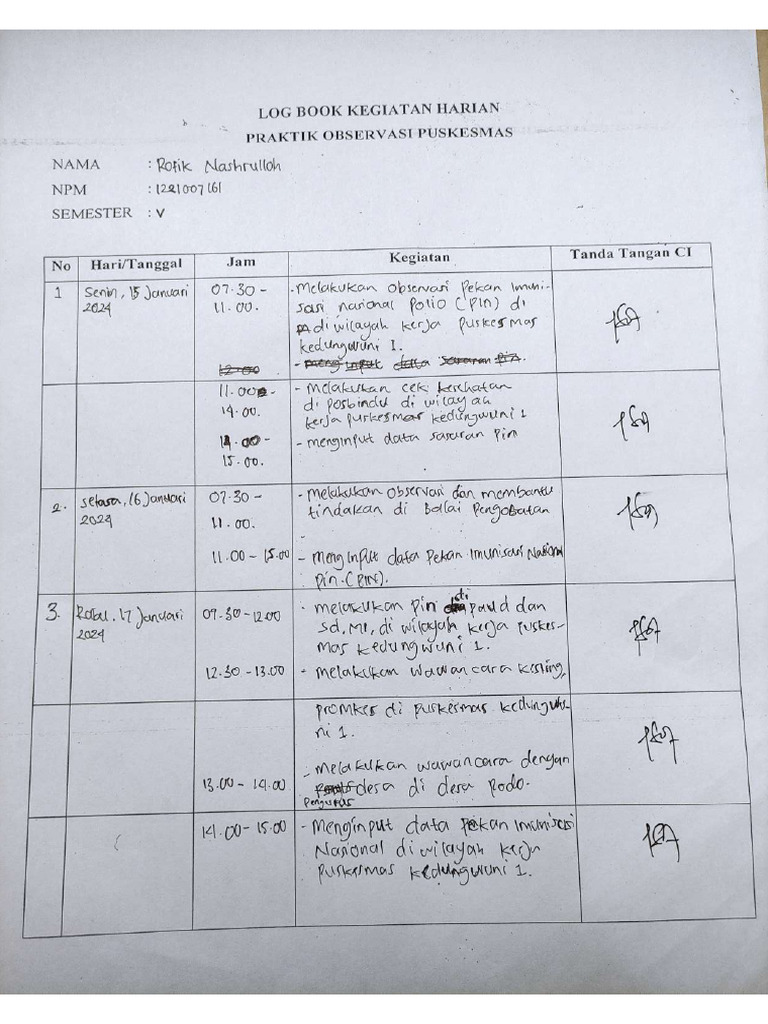 LOG BOOK KEGIATAN HARIAN
PRAKTIK OBSERVASI PUSKESMAS
NAMA : Rofik Nashrulloh
NPM : 1221007161
SEMESTER : V
No Hari/Tanggal Jam Kegiatan Tanda Tangan CI
1 Senin, 15 Januari 07.30 - - Melakukan observasi Pekan Imuni-
2024 11.00. sasi nasional Polio (PIN) di
di wilayah kerja puskesmas
kedungwuni 1.
12.00 - menginput data sasaran Pin.
11.00 - - Melakukan cek kesehatan
14.00. di posbindu di wilayah
kerja puskesmas kedungwuni 1
14.00 - - menginput data sasaran Pin
15.00.
2. Selasa, 16 Januari 07.30 - - Melakukan observasi dan membantu
2024 11.00. tindakan di Balai Pengobatan
11.00 - 15.00 - menginput data Pekan Imunisasi Nasional
Pin. (PIN).
3. Rabu, 17 Januari 07.30 - 12.00 - melakukan pin di paud dan
2024 sd, MI, di wilayah kerja puskes-
mas kedungwuni 1.
12.30 - 13.00 - melakukan wawancara kesling,
promkes di puskesmas kedungwu-
ni 1.
- melakukan wawancara dengan
13.00 - 14.00 desa di desa Podo.
Pengurus
14.00 - 15.00 - Menginput data Pekan Imunisasi
Nasional di wilayah kerja
puskesmas kedungwuni 1.